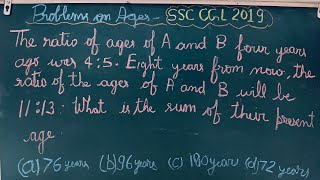 Problems on Ages - SSC CGL 2019
The ratio of ages of A and B four years
ago was 4:5. Eight years from now, the
ratio of the ages of A and B will be
11:13. What is the sum of their present
age.
(a) 76 years (b) 96 years (c) 100 years (d) 72 years